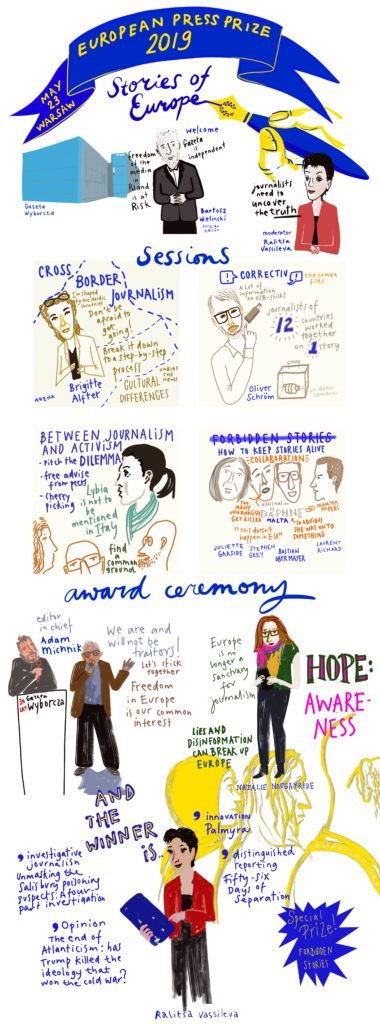 EUROPEAN PRESS PRIZE
2019
MAY
23
WARSAW
Stories of
Europe
Gazeta
Wyborcza
freedom
of the
media
in
Poland
is at
Risk
welcome
Gazeta
is
independent
Bartosz
Wielinski
foreign
editor
journalists
need to
uncover
the truth
moderator
Ralitsa
Vassileva
sessions
CROSS
BORDER
JOURNALISM
I'm shaped
by the Nordic
countries
Don't be
afraid to
get
going!
Break it down
to a step-by-step
process
UNBIAS
THE NEWS
CULTURAL
DIFFERENCES
Brigitte
Alfter
ARENA
CORRECTIV
the cumex
files
A lot of
information
on USB-sticks
journalists of
12 countries
worked
together
on 1
story
Oliver
Schröm
hidden
camera
BETWEEN JOURNALISM
AND ACTIVISM
- Pitch the DILEMMA!
- free advise
from peers
- cherry
picking
Lybia
is not to
be
mentioned
in Italy
find
a common
ground
FORBIDDEN STORIES
HOW TO KEEP STORIES ALIVE
COLLABORATION
TOO
MANY
JOURNALISTS
GET KILLED
DAPHNE
MALTA
PANAMA
PAPERS
"This doesn't
happen in EU"
SO OBVIOUS
SHE WAS ONTO
SOMETHING
JULIETTE
GARSIDE
STEPHEN
GREY
BASTIAN
OBERMAYER
LAURENT
RICHARD
award ceremony
editor
in chief
Adam
Michnik
We are and
will not be
traitors!
Let's stick
together
Freedom
in Europe
is our common
interest
30 Gazeta
LAT Wyborcza
Europe
is no
longer a
sanctuary
for
journalism
HOPE:
AWARE-
NESS
LIES AND
DISINFORMATION
CAN BREAK UP
EUROPE
NATALIE NOUGAYRÈDE
AND
THE
WINNER
IS..
innovation
Palmyra
investigative
journalism
Unmasking the
Salisbury poisoning
suspects: A four-
part investigation
distinguished
reporting
Fifty-six
Days of
Separation
Opinion
The end of
Atlanticism: has
Trump killed the
ideology that
won the cold war?
Special
Prize!
FORBIDDEN
STORIES
Ralitsa Vassileva